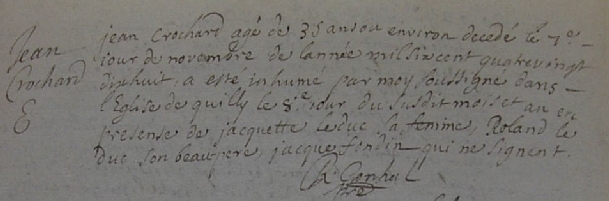 Jean
Crochard
jean Crochard agé de 35 ans ou environ decedé le 7e
jour de novembre de lannée mil six cent quatre vingt
dixhuit, a esté inhumé par moy soussigné dans
l'Eglise de quilly le 8e jour du susdit mois et an en
presense de jacquette le duc sa femme, Roland le
duc son beaupere, jacque qui ne signent.